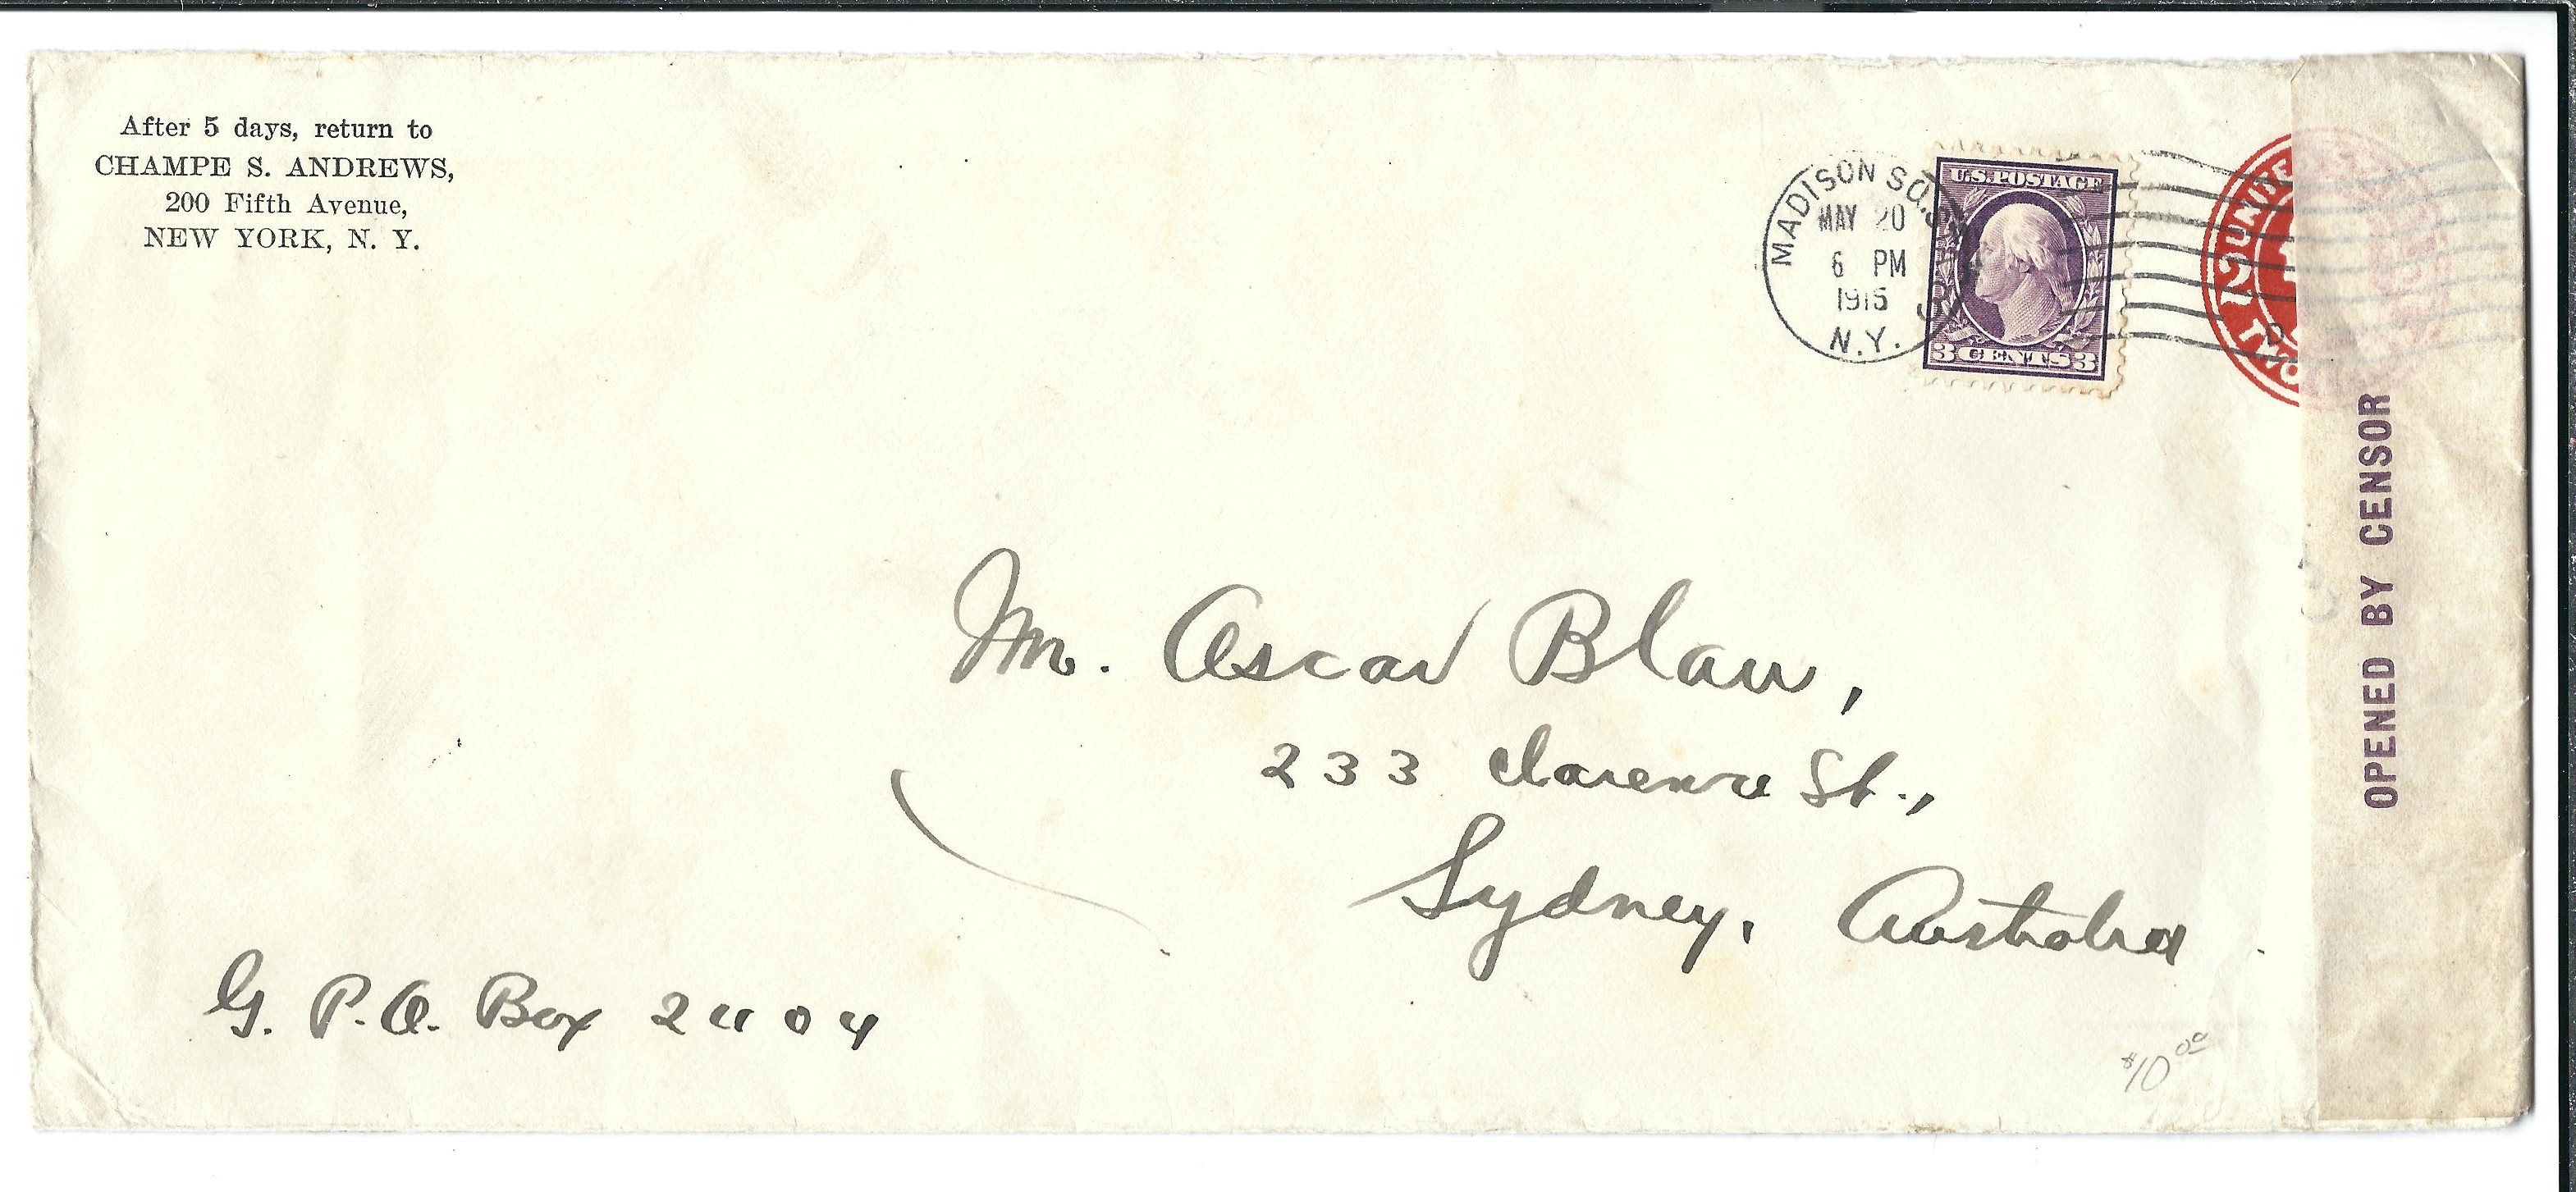 After 5 days, return to
CHAMPE S. ANDREWS,
200 Fifth Avenue,
NEW YORK, N. Y.
MADISON SQ. STA.
MAY 20
6 PM
1915
N.Y.
3
U.S. POSTAGE
3 CENTS 3
UNI
TWO
OPENED BY CENSOR
Mr. Oscar Blau,
233 Clarence St.,
Sydney, Australia
G. P.O. Box 2404
$10.00